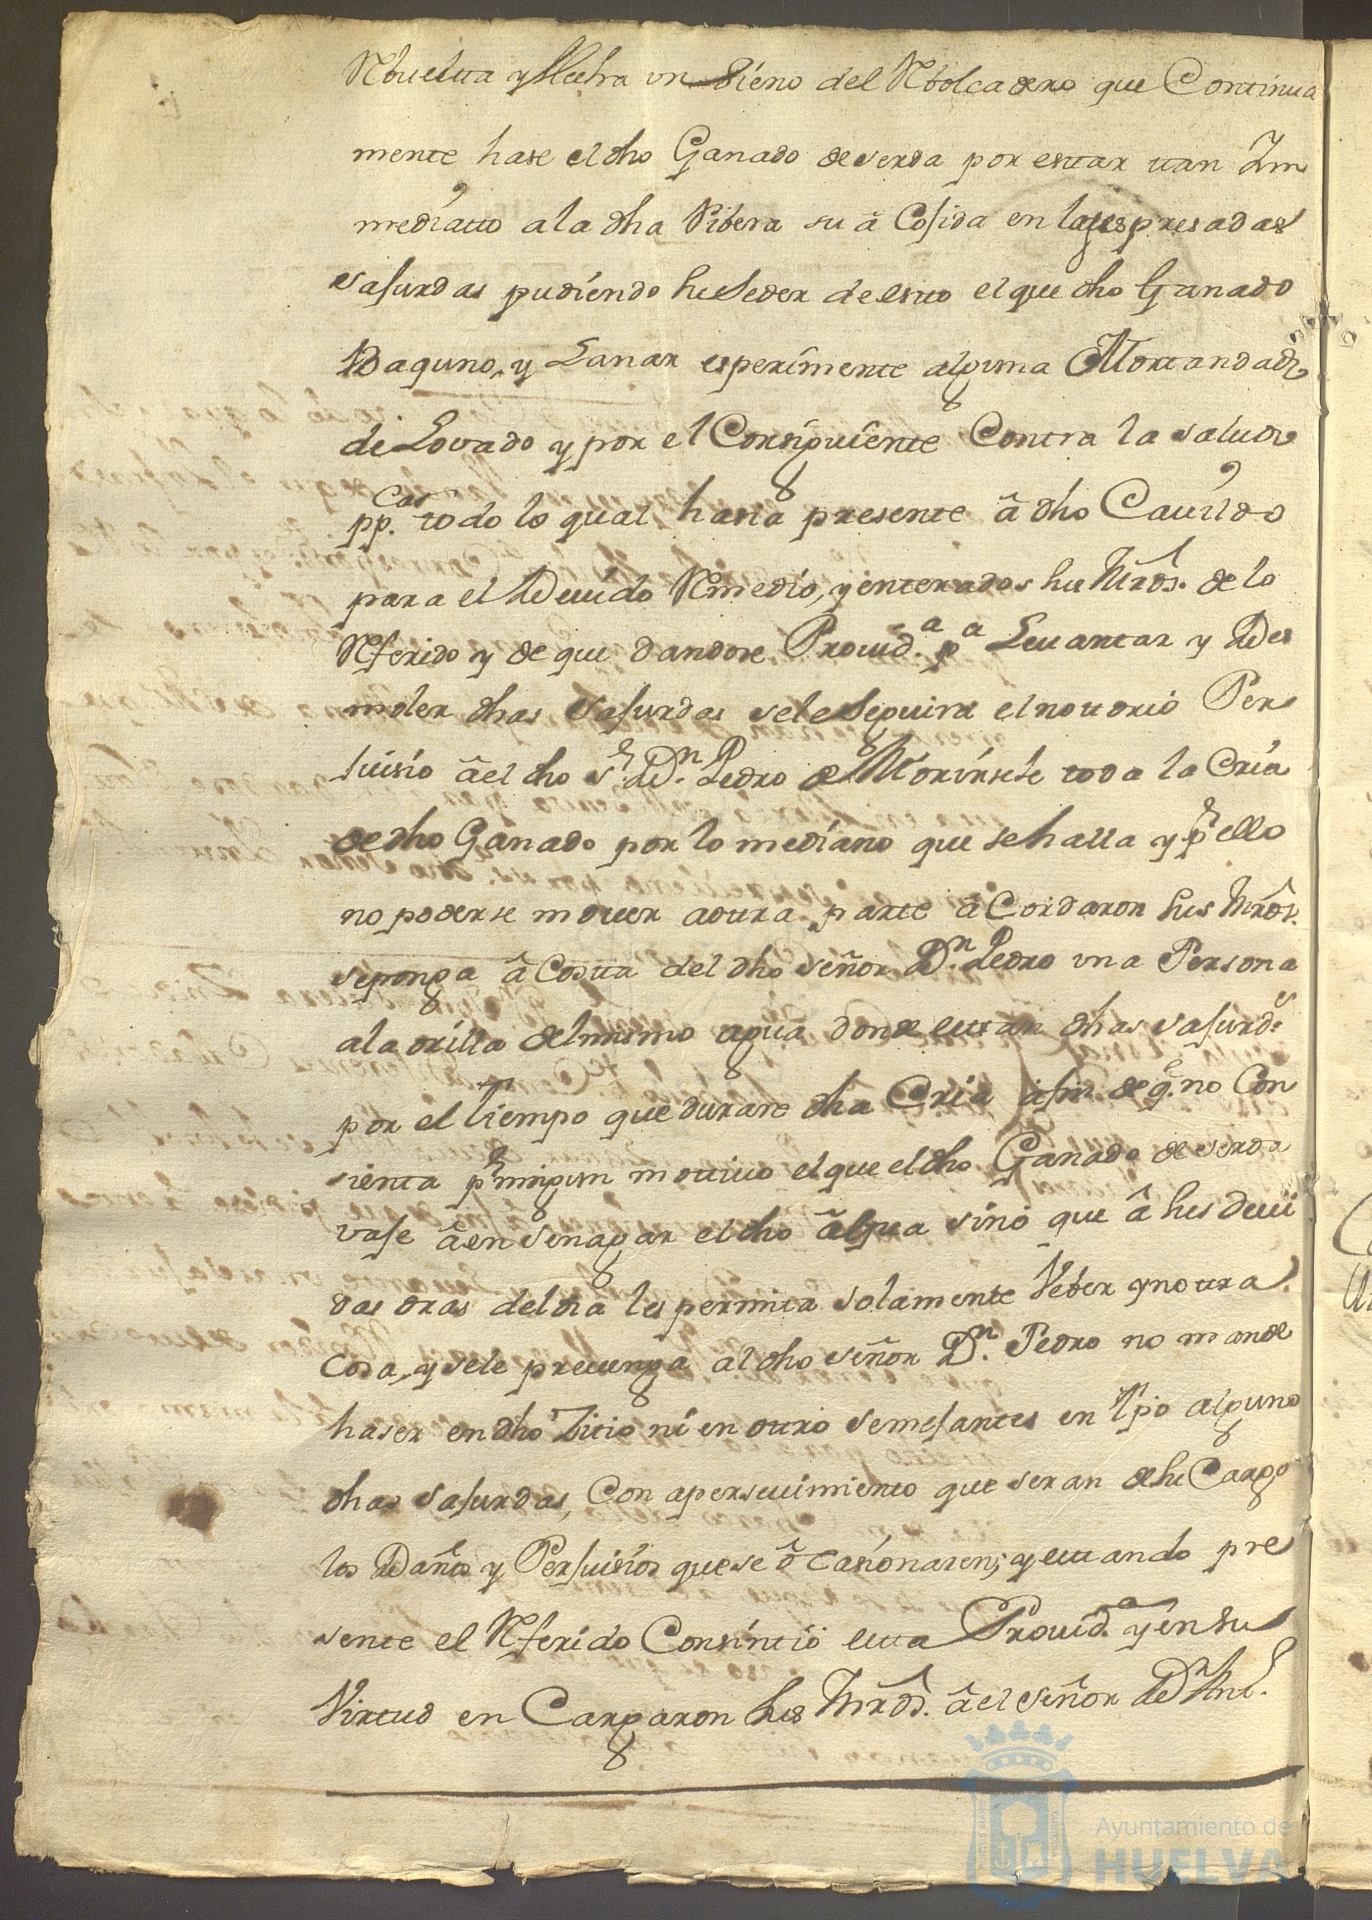 Rbuelta y Hecha vn Sieno del Rbolcadero que Continua
mente hase el dho Ganado de serda por estar tan Im
mediatto a la dha Ribera su â Cosida en las espresadas
sasurdas pudiendo suseder de esto el que dho Ganado
Baquno, y Lanar esperimente alguna Mortandad
de Lovado y por el Consiguiente Contra la salud
ppca. todo lo qual hasia presente â dho Cavildo
para el Devido Rmedio, y enterados sus Mrds. de lo
Rferido y de que dandose Provida. pa. Levantar y Des
moler dhas sasurdas se le seguira el notorio Per
juisio â el dho sr. Dn. Pedro de Morirsele toda la Cria
de dho Ganado por lo mediano que se halla y pr. ello
no poderse mover a otra parte â Cordaron sus Mrds.
se ponga â Costa del dho señor Dn. Pedro vna Persona
a la orilla del mismo agua donde estan dhas sasurds.
por el Tiempo que durare dha Cria a fin de qe. no Con
sienta pr. ningun motivo el que el dho Ganado de serda
vase â ensenagar el dho âgua sino que â sus devi
das oras del dia les permita solamente Veber y no otra
Cosa, y se le prevenga al dho señor Dn. Pedro no mande
haser en dho Zitio ni en otro semejantes en tpo alguno
dhas sasurdas, Con apersevimiento que seran de su Cargo
los Daños y Persuisios que se ôcasionaren; y estando pre
sente el Rferido Consintiô esta Provida. y en su
Virtud en Cargaron sus Mrds. â el señor Dn.
Ayuntamiento de
HUELVA